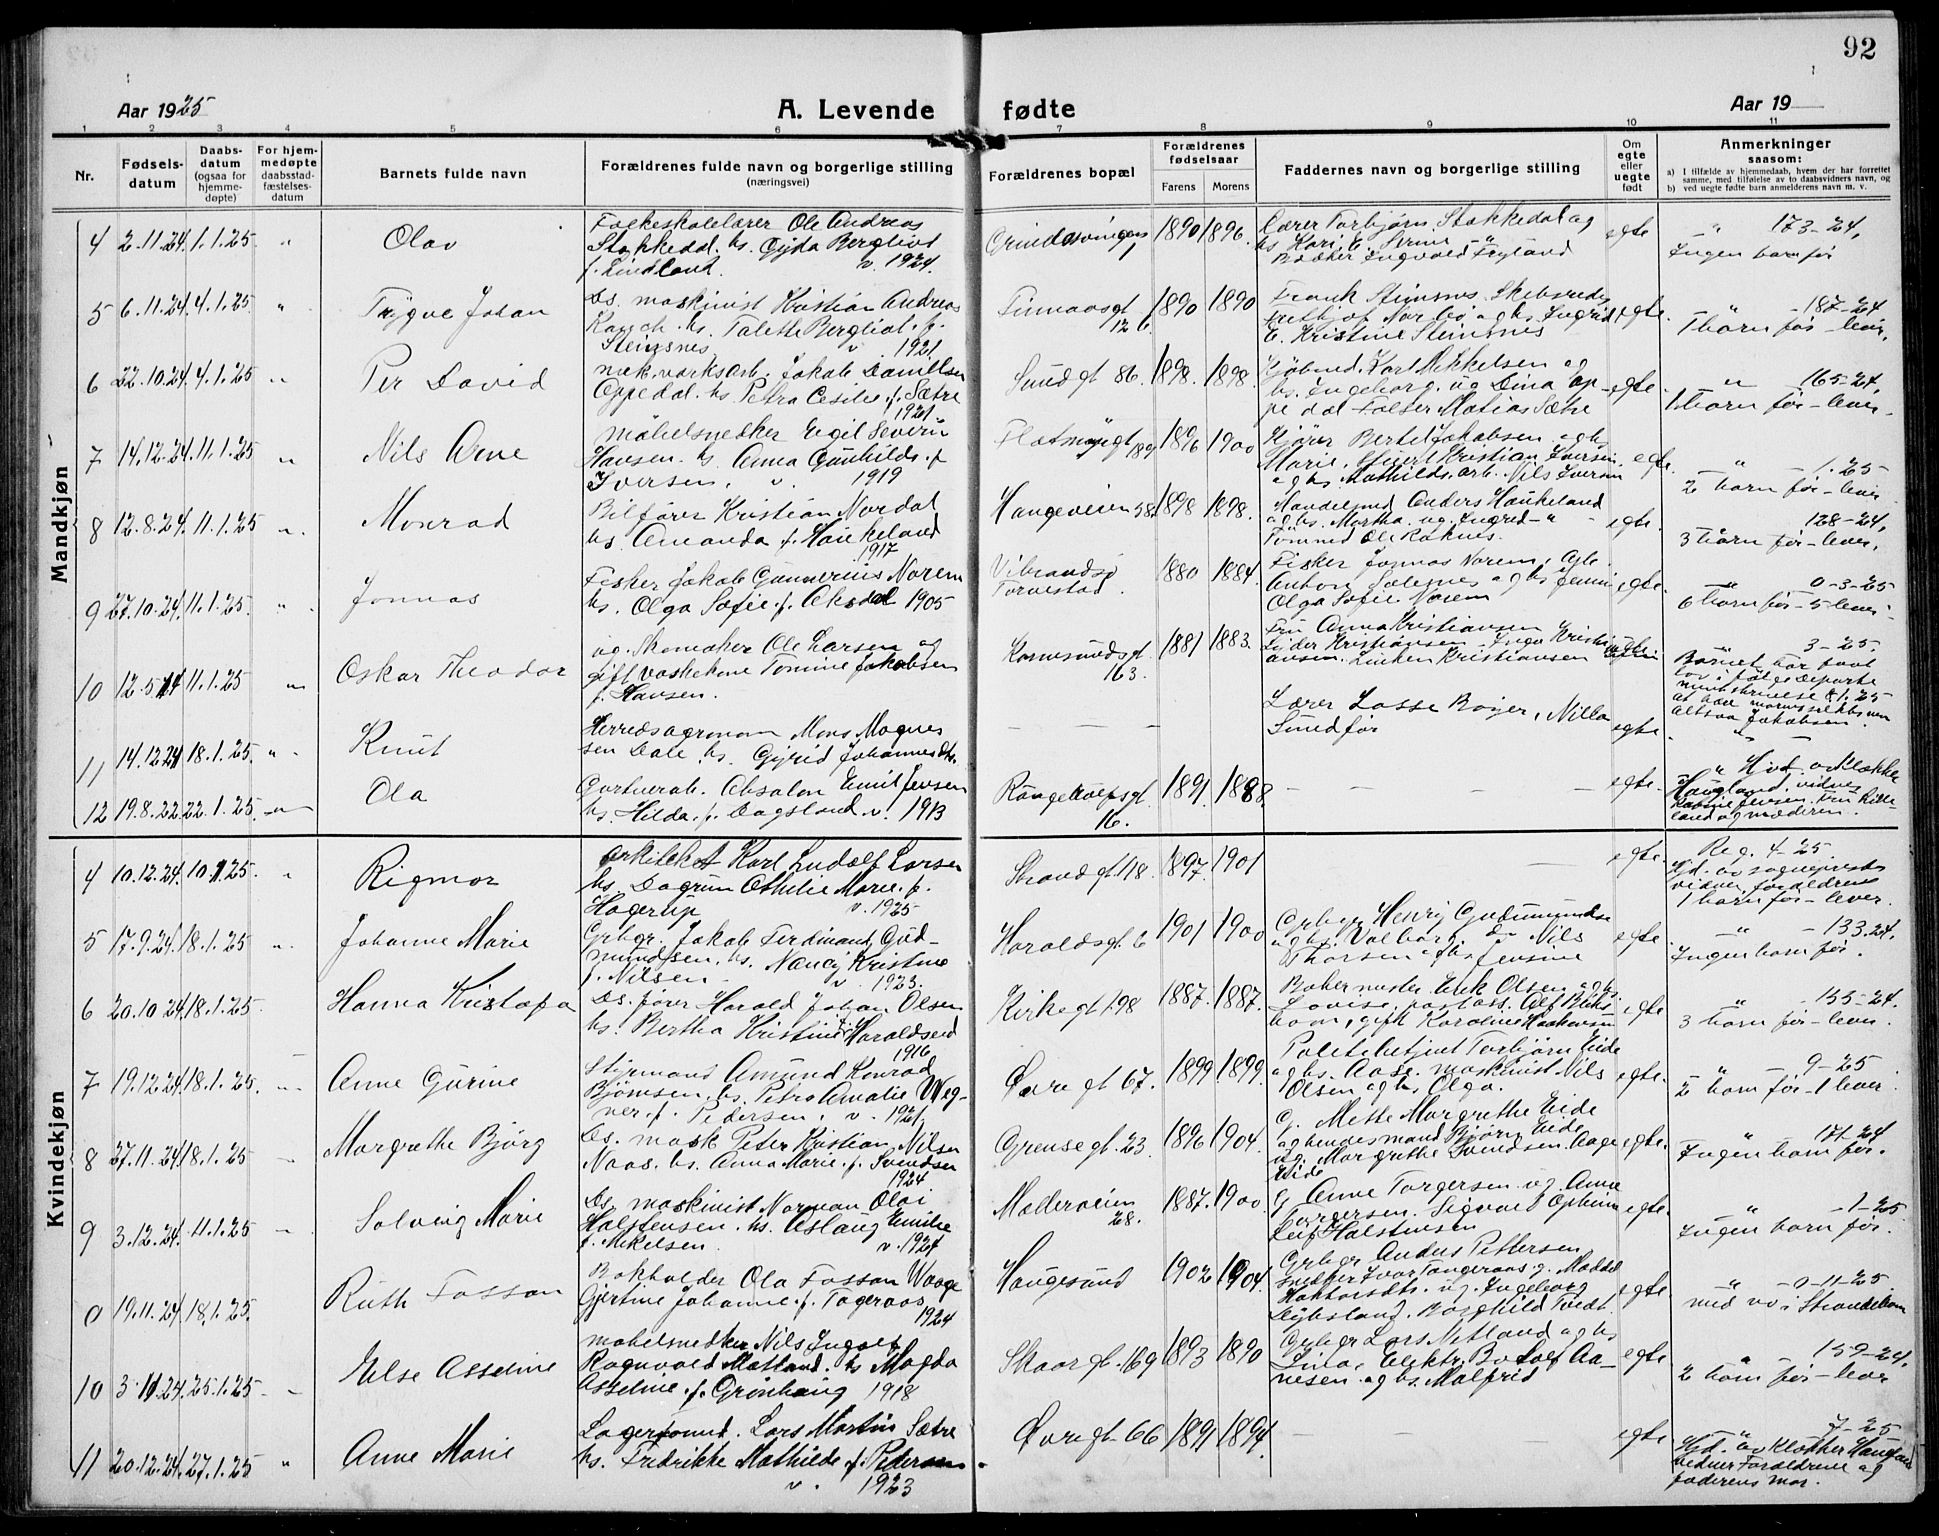 92
Aar 1925
A. Levende
fødte
Aar 19
1 2 3 4 5 6 7 8 9 10 11
Nr.
Fødsels-
datum
Daabs-
datum
(ogsaa for
hjemme-
døpte)
For hjem-
medøpte
daabsstad-
fæstelses-
datum
Barnets fulde navn
Forældrenes fulde navn og borgerlige stilling
(næringsvei)
Forældrenes bopæl
Forældrenes
fødselsaar
Farens Morens
Faddernes navn og borgerlige stilling
Om
egte
eller
uegte
født
Anmerkninger
saasom:
a) I tilfælde av hjemmedaab, hvem der har forrettet
samme, med tilføielse av to daabsvidners navn, og
b) ved uegte fødte barn anmelderens navn m. v.
Mandkjøn
4 2.11.24. 1.1.25 " Olav
Folkeskolelærer Ole Andreas
Stokkedal. hs. Gyda Bergliot
f. Lindland. v. 1924.
1890 1896.
Lærer Torbjørn Stokkedal og
egte
" 173-24.
Ingen barn før
5 6.11.24. 4.1.25 " Trygve Johan
Ds. maskinist Kristian Andreas
hs. Tolette Bergliot. f.
Steinsnes v. 1921
Finnaasgt 12 b.
1890 1890
Frank Steinsnes. Skibsred
E. Kristine Steinsnes
egte.
" 187-24
1 barn før - lever.
6 22.10.24. 4.1.25 " Per David
mek. verksarb. Jakob Danielsen
Oppedal. hs Petra Cesilie f. Sætre
1921
Sund gt 86. 1898. 1898.
Karl Mikkelsen og
hs. Ingeborg. ug Dina Op-
pedal Matias Sætre
egte.
" 165-24,
1 barn før - lever.
7 14.12.24. 11.1.25 " Nils Arne
møbelsnedker Engil Severin
Hansen. hs. Anna Gunhilda. f
Iversen. v. 1919
1896 1900
Bertel Jakobsen og hs
Marie. Kristian Iversen
og hs Mathilde. arb. Nils Iversen
egte.
" - 1-25
2 barn før - lever
8 12.8.24. 11.1.25 " Monrad
Bilfører Kristian Nordal
hs Amanda f. Haukeland
1917
Haugeveien 58. 1898 1898.
Handelsmd Anders Haukeland
og hs. Martha. ug. Ingrid - " -
Tømmermd Ole Røknes.
egte.
128-24,
3 barn før - lever.
9 27.10.24. 11.1.25. " Jonnas
Fisker Jakob Gunnerius Norem
hs. Olga Sofie f. Aksdal 1905
Vibrandsø
Torvestad.
1880 1884.
Fisker Jonnas Norem,
Anton Solesnes og hs Jenni
Olga Sofie Norem
egte.
" 0-3-25
6 barn før - 5 lever
10 12.5.14 11.1.25 " Oskar Theodor
ug. Skomaker Ole Larsen og
gift vaskekone Tomine Jakobsen
f. Hansen.
Karmsundsgt
163.
1881 1883.
Fru Anna Kristiansen
Kristiansen. Inga Kristi
ansen. Linken Kristiansen
3-25.
Barnet har faat
lov i følge departe
mentskrivelse 8/1.25
at bære morens slektsnavn
altsaa Jakobsen.
11 14.12.24 18.1.25. " Knut
Herredsagronom Mons Magnes
sen Dale. hs. Gyrid Johannesdtr.
- - -
Lærer Lasse Bøyer, Nilla
Sundfør
egte.
12 19.8.22. 22.1.25. " Ola
Gartnerab. Absalon Emil Jensen
hs. Hilda f. Dagsland v. 1913
16.
1891 1888.
- - -
egte.
" Hjd. av klokker
Haugland, vidner
land og moderen.
Kvindekjøn
4 10.12.24. 10.1.25. " Rigmor
arkitekt Karl Ludolf Larsen
hs. Dagrun Othilie Marie. f.
Hagerup v. 1925
Strandgt 118. 1897. 1901
egte.
Reg. 4-25
Hjd. av sognepresten
vidner, forældrene
1 barn før - lever.
5 17.9.24. 18.1.25 " Johanne Marie
Grbgr. Jakob Ferdinand Gud-
mundsen. hs. Nancy Kristine
f. Nilsen - v. 1923.
Haraldsgt 6 1901 1900
Grbgr Henry Gudmundse
og hs. Valborg. Nils
Thorsen og hs Jensine
egte.
" - 133.24.
Ingen barn før.
6 20.10.24. 18.1.25. " Hanna Kristofa
Ds. fører Harald Johan Olsen
hs. Bertha Kristine Haraldseid
1916
Kirkegt 198 1887. 1887.
Bakermester Erik Olsen og hs.
Lovise, Alf Bliks
havn, gift Karoline Haakonsen
egte
" - 155-24.
3 barn før - lever.
7 19.12.24. 18.1.25. " Anne Gurine
Styrmand Amund Konrad
Bjørnsen. hs. Petra Amalie Weg-
ner. f. Pedersen. v. 1921.
Øvregt 67. 1899 1899.
Politibetjent Torbjørn Eide
og hs. Aase. maskinist Nils
Olsen og hs Olga.
egte.
" - 9-25
2 barn før - 1 lever.
8 27.11.24. 18.1.25 " Margrethe Bjørg
Ds. mask Peter Kristian Nilsen
Naas. hs. Anna Marie f. Svendsen
1924.
Grensegt. 23. 1896 1904.
G. Mette Margrethe Eide
og hendes mand Bjørn Eide
ug. Margrethe Svendsen. Aage
Eide
egte.
" - 171-24
Ingen barn før.
9 3.12.24. 11.1.25. " Solveig Marie
Ds. maskinist Norman Olai
Halstensen. hs. Aslaug Emilie
f. Mikelsen. v. 1924
Møllerveien
28.
1887. 1900.
G Anne Torgersen ug. Anna
Torgersen. Sigvald Opheim
Leif Halstensen
egte.
" - 1-25.
Ingen barn før.
0 19.11.24. 18.1.25. Ruth Fossan
Bokholder Ola Fossan Waage
Gjertine Johanne. f. Tageraas
1924
Haugesund 1902 1904.
Grbgr Anders Pettersen
Ivar Tangeraas g. Malene
ug. Ingeborg
Borghild Tvedt
egte.
" - 0-11-25
med no i Strandebarm
10 3.11.24. 25.1.25. " Else Asseline
møbelsnedker Nils Ingolf
Ragnvald Matland. hs Magda
Asseline. f. Grønhaug 1918
Skaaregt. 169 1893 1890
Grbgr Lars Netland og hs
Lina, Elektr. Botolf Aa-
nesen. og hs. Malfrid
egte
" - 159-24.
2 barn før - lever
11 20.12.24. 27.1.25 " Anne Marie
Lagerformd. Lars Martin Sætre
hs. Fredrikke Mathilde f. Pedersen.
v. 1923
Øvregt 66 1891 1894.
- - -
egte.
" 7-25
Hjd. av klokker Haugland
vidner Forældrene og
faderens mor.